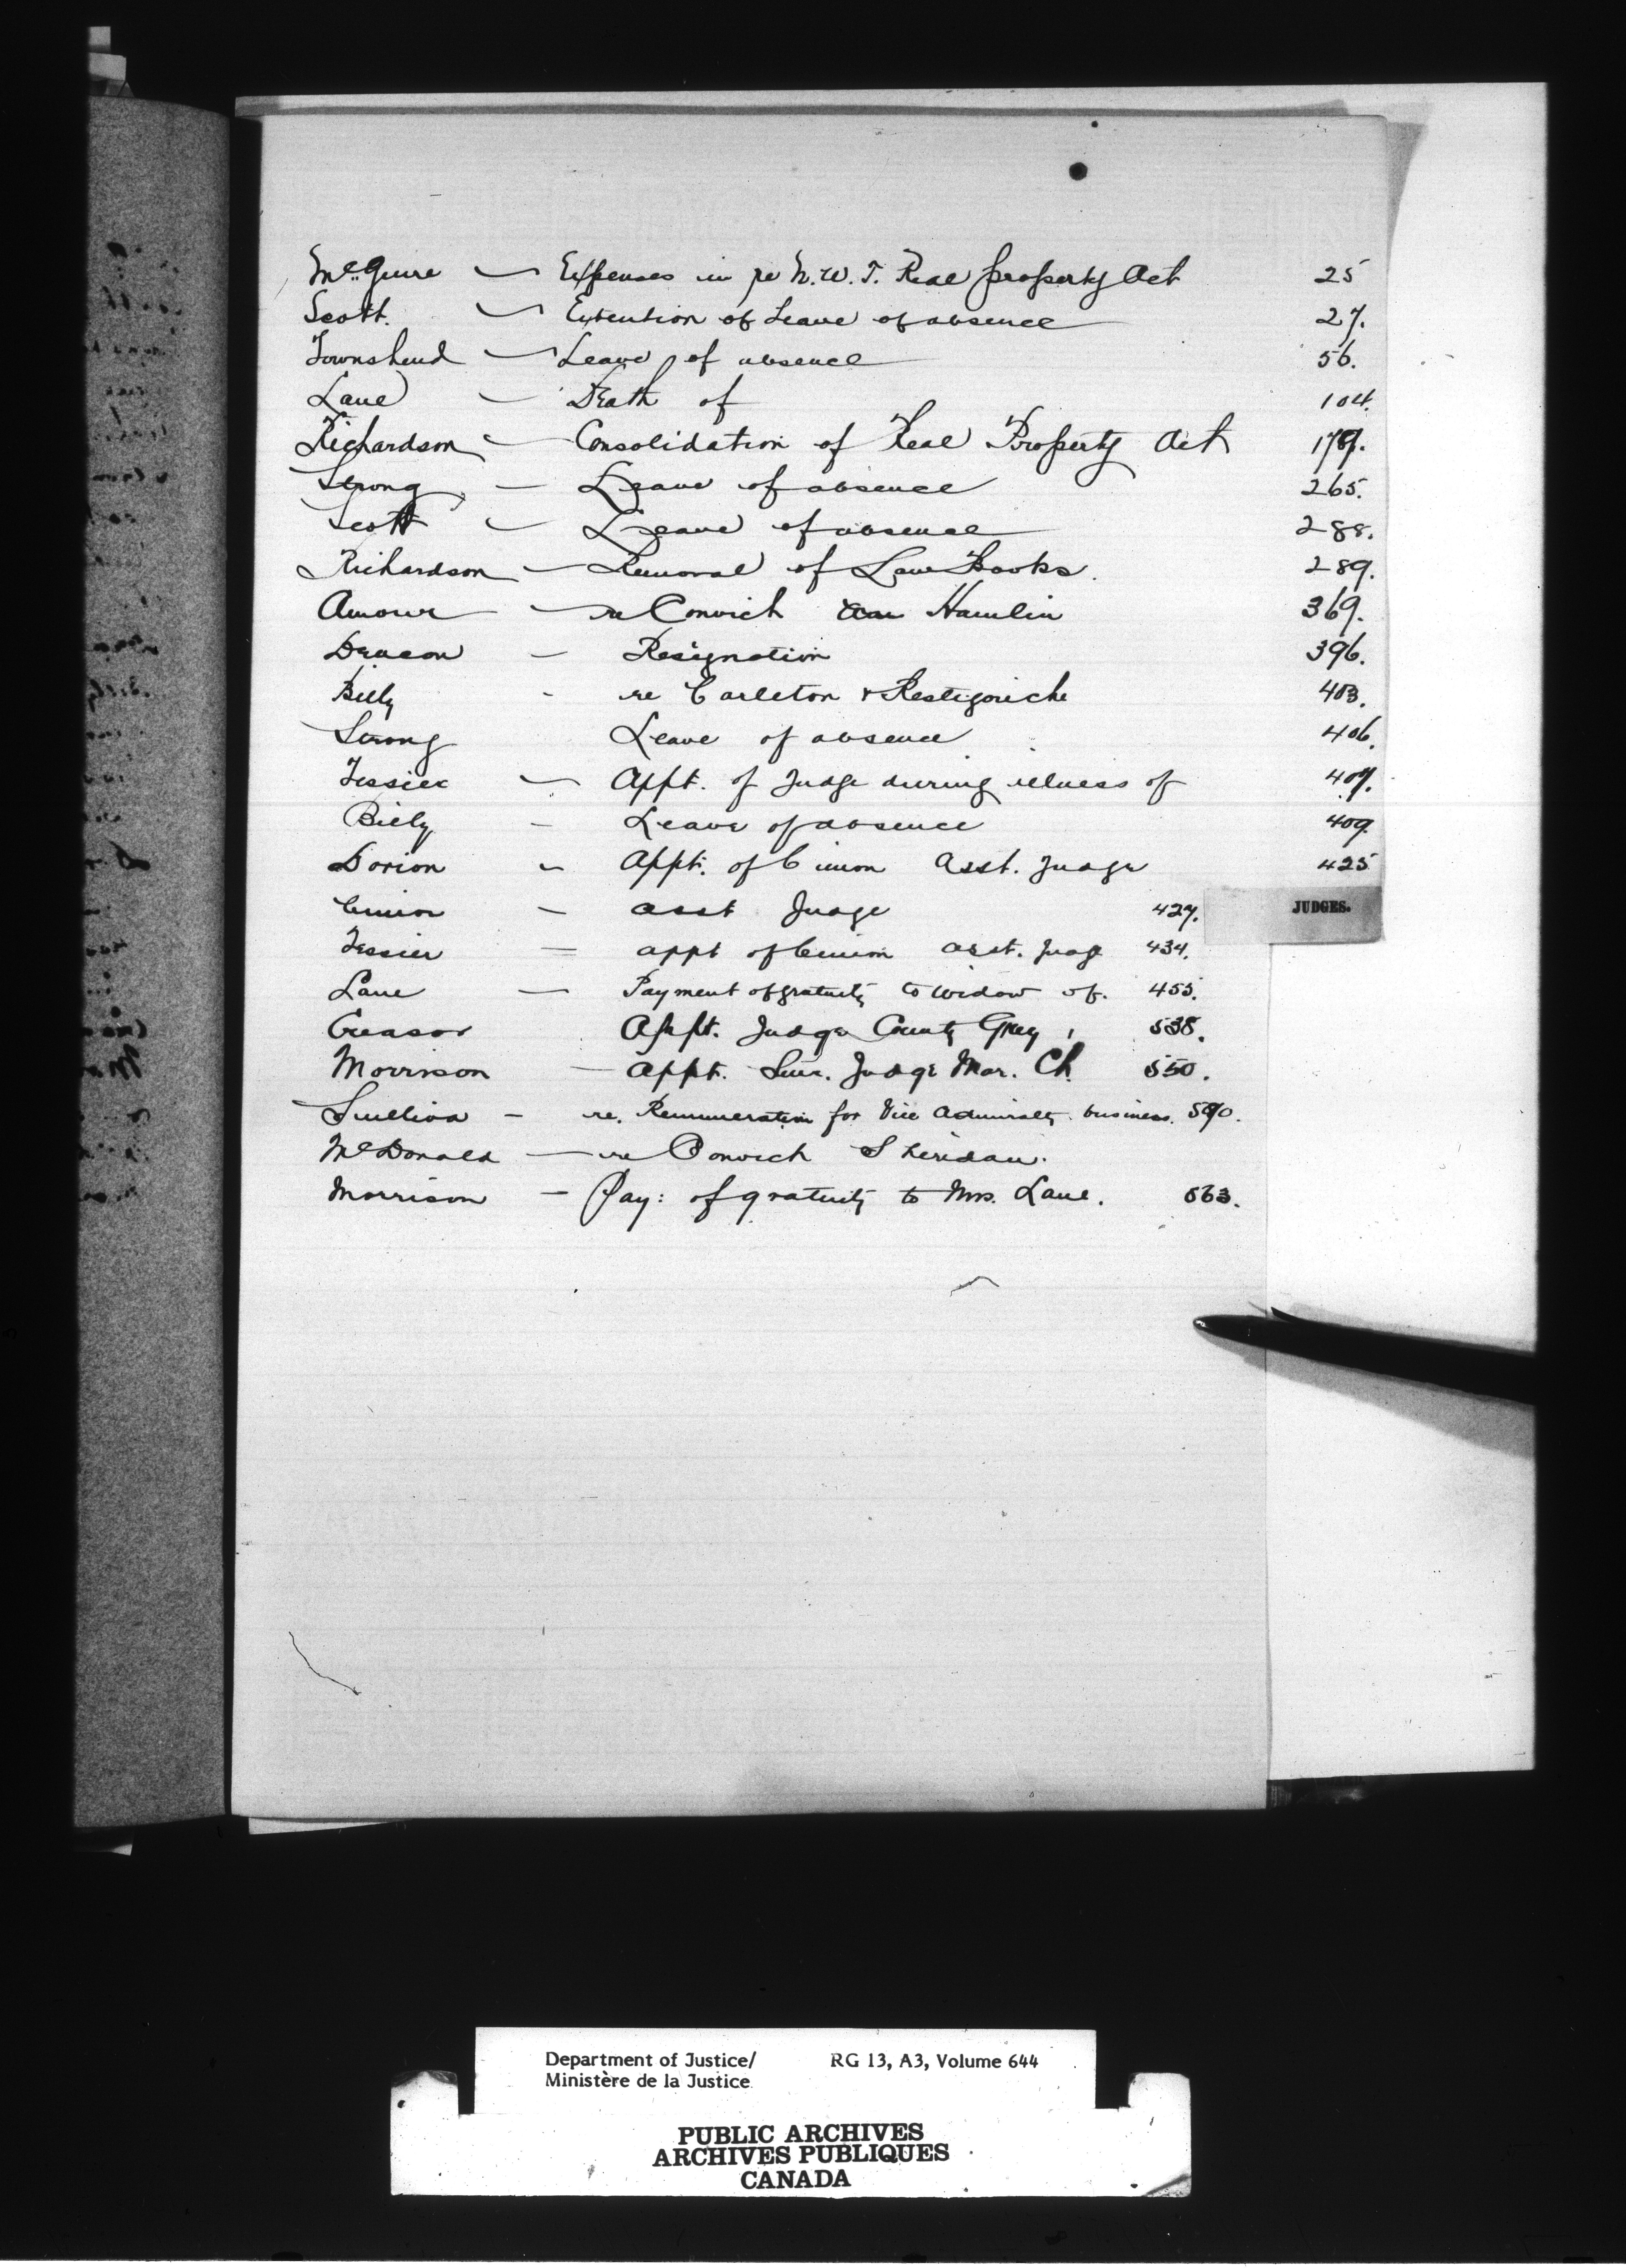 McGuire — Expenses in re N.W.T. Real property Act 25
Scott. — Extention of Leave of absence 27.
Townshend — Leave of absence 56.
Lane — Death of 104.
Richardson — Consolidation of Real Property Act 179.
Strong — Leave of absence 265.
Scott — Leave of absence 288.
Richardson — Removal of Law Books. 289.
Amour — re Convict Hamlin 369.
Deacon — Resignation 396.
Billy - re Carleton & Restigouche 403.
Strong Leave of absence 406.
Tessier — Appt. of Judge during illness of 407.
Billy - Leave of absence 409
Dorion - Appt. of Cimon Asst. Judge 425
Cimon - asst Judge 427.
JUDGES.
Tessier = appt of Cimon asst. Judge 434.
Lane — Payment of gratuity to widow of. 455.
Creasor Appt. Judge County Grey, 538.
Morrison — Appt. Surr. Judge Mar. Ct. 550.
Sullivan - re. Remuneration for Vice Admiralty business.
McDonald — re Convict Sheridan.
Morrison — Pay: of gratuity to Mrs. Lane. 563.
Department of Justice/ RG 13, A3, Volume 644
Ministère de la Justice
PUBLIC ARCHIVES
ARCHIVES PUBLIQUES
CANADA